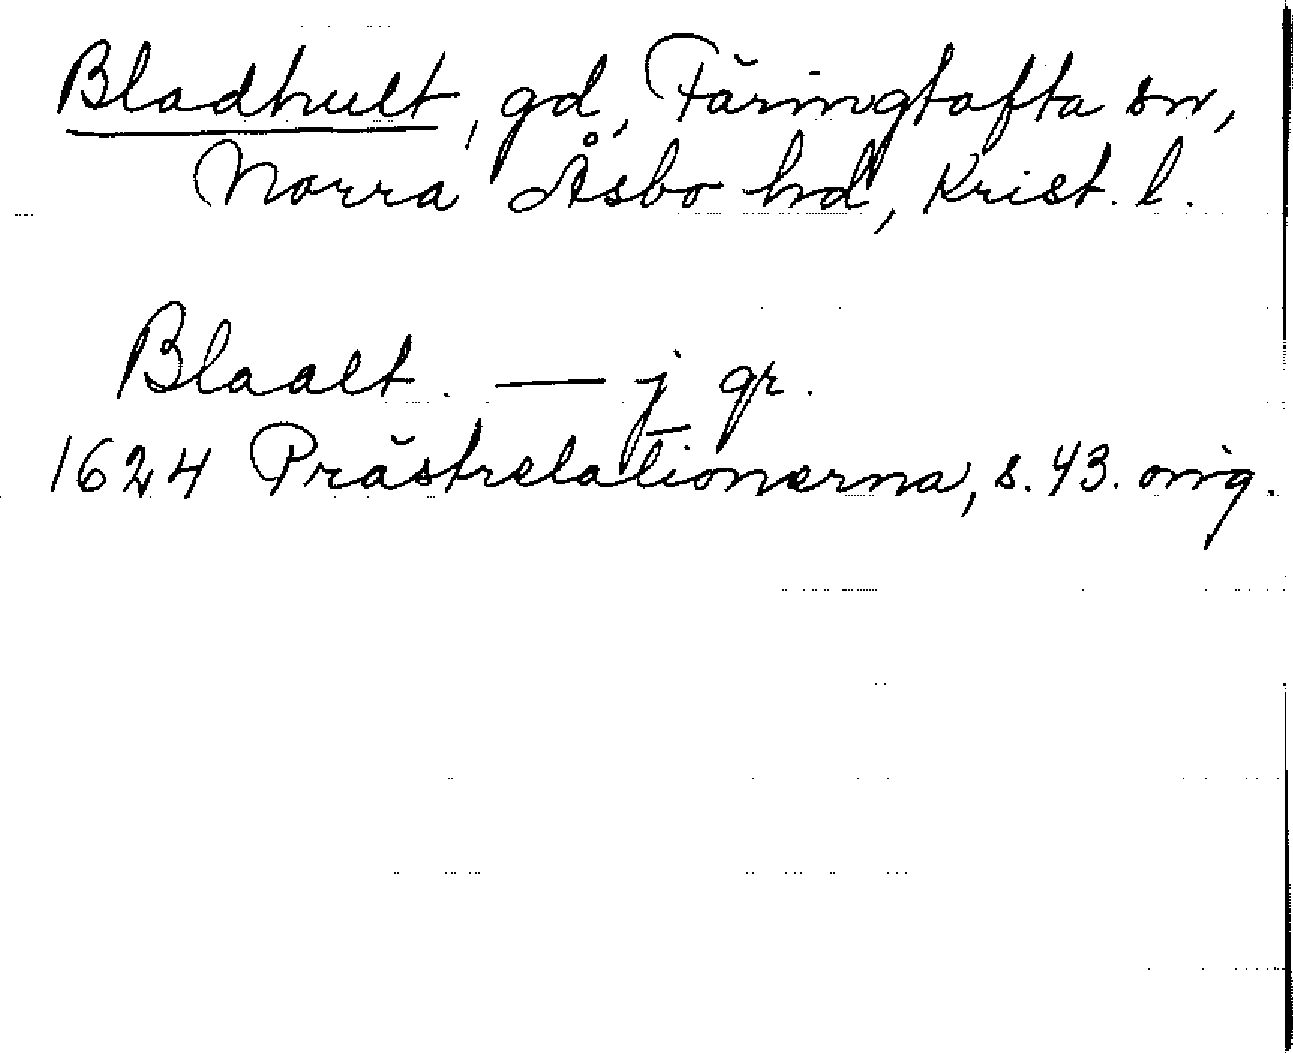 Bladhult, gd, Färingtofta sn,
Norra Åsbo hd, Krist. l.
Blaalt. — j gr.
1624 Prästrelationerna, s. 43. orig.